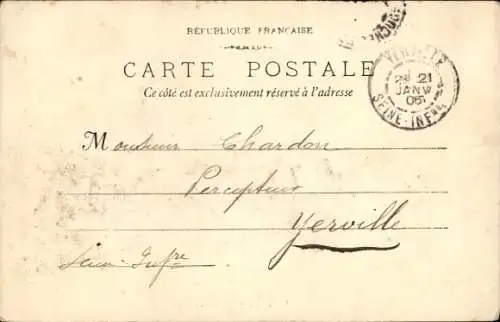 RÉPUBLIQUE FRANÇAISE
CARTE POSTALE
Ce côté est exclusivement réservé à l'adresse
YERVILLE
21
JANV
05
SEINE-INFRE
Monsieur Chardon
Percepteur
Yerville
Seine-Infre